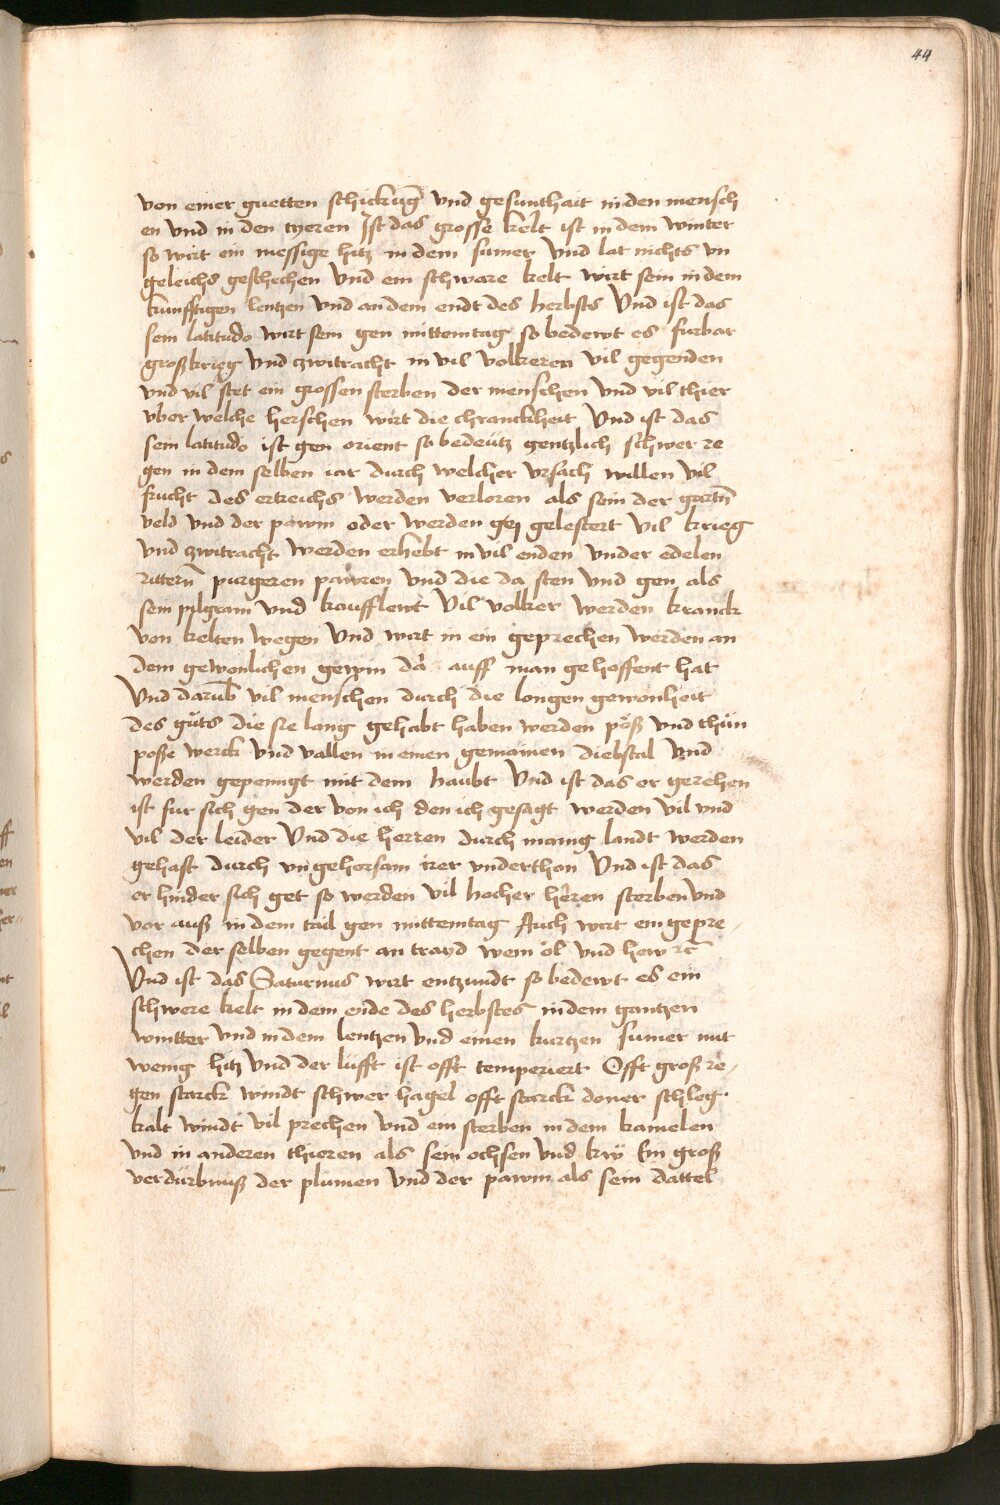 44
von einer guetten schickūg vnd gesunthait in den mensch
en vnd in den tyeren Ist das grosse kelt ist in dem winter
so wirt ein messige hitz in dem sumer Vnd lat nichts vn
geleichs geschechen Vnd ein schware kelt wirt sein in dem
kunfftigen lentzen Vnd an dem endt des herbsts Vnd ist das
sein latitudo wirt sein gen mittemtag so bedewt es furbar
groß krieg Vnd zwitracht in vil volkeren vil gegenden
vnd vil stet ein grossen sterben der menschen Vnd vil thier
vber welche herschen wirt die chranckheit Vnd ist das
sein latitudo ist gen orient so bedeütz gentzlich schwer re
gen in dem selben iar durch welcher vrsach willen vil
frucht des ertreichs werden verloren als sein der gartñ
veld vnd der pawm oder werden gelestert Vil krieg
vnd zwitracht werden erhebt in vil enden vnder edelen
ritterñ purgeren pawren Vnd die da sten vnd gen als
sein pilgram vnd kaufflewt Vil volker werden kranck
von kelten wegen Vnd wirt in ein geprechen werden an
dem gewonlichen gewin dar auff man gehoffent hat
Vnd darūb vil menschen durch die longen gewonheit
des gůts die sie lang gehabt haben werden pöß vnd thün
posse werck vnd vallen in einen gemainen diebstal Vnd
werden gepeinigt mit dem haubt Vnd ist das er gerehen
ist fur sich gen der von ich den ich gesagt werden vil vnd
vil der leider Vnd die herren durch manig landt werden
gehast durch vngehorsam irer vnderthon Vnd ist das
er hinder sich get so werden vil hocher herren sterben vnd
vor auß in dem tail gen mittemtag Auch wirt ein gepre
chen der selben gegent an trayd wein öl vnd hew ꝛc
Vnd ist das Saturnus wirt entzundt so bedewt es ein
schwere kelt in dem ende des herbstes in dem gantzen
wintter vnd in dem lentzen Vnd einen kurtzen sumer mit
wenig hitz Vnd der lüfft ist offt temperiert Offt groß re
gen starck windt schwer hagel offt starck doner schleg
kalt windt vil prechen Vnd ein sterben in dem kamelen
vnd in anderen thieren als sein ochsen vnd kẅ Ein groß
verdürbnuß der plumen Vnd der pawm als sein dattel